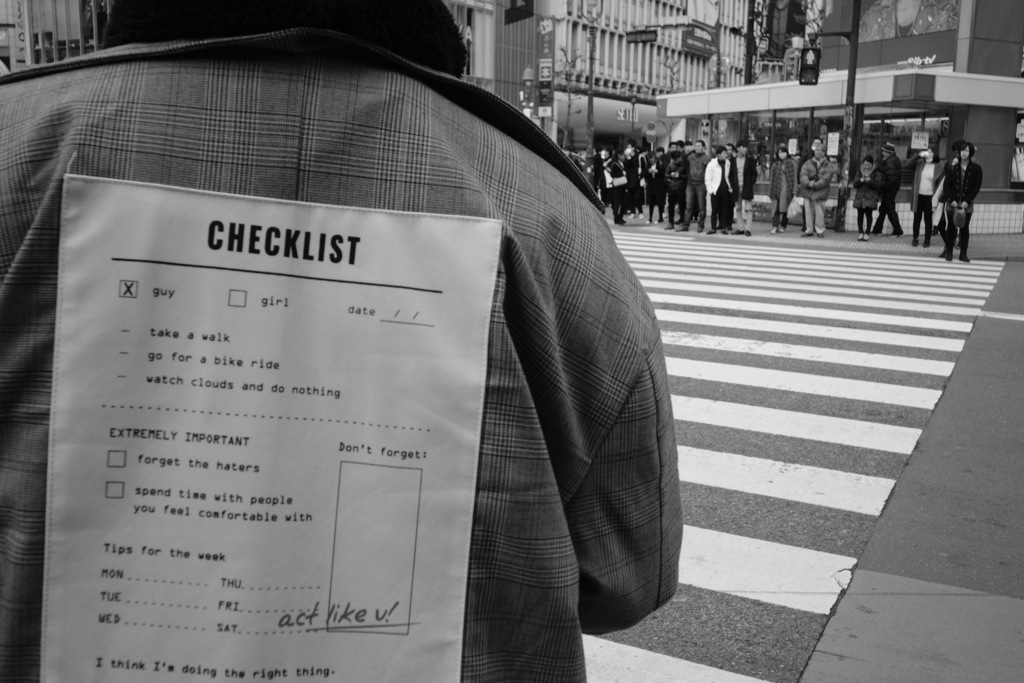 CHECKLIST
X guy girl date / /
– take a walk
– go for a bike ride
– watch clouds and do nothing
EXTREMELY IMPORTANT
Don't forget:
forget the haters
spend time with people
you feel comfortable with
Tips for the week
MON THU
TUE FRI
WED SAT
act like u!
I think I'm doing the right thing.